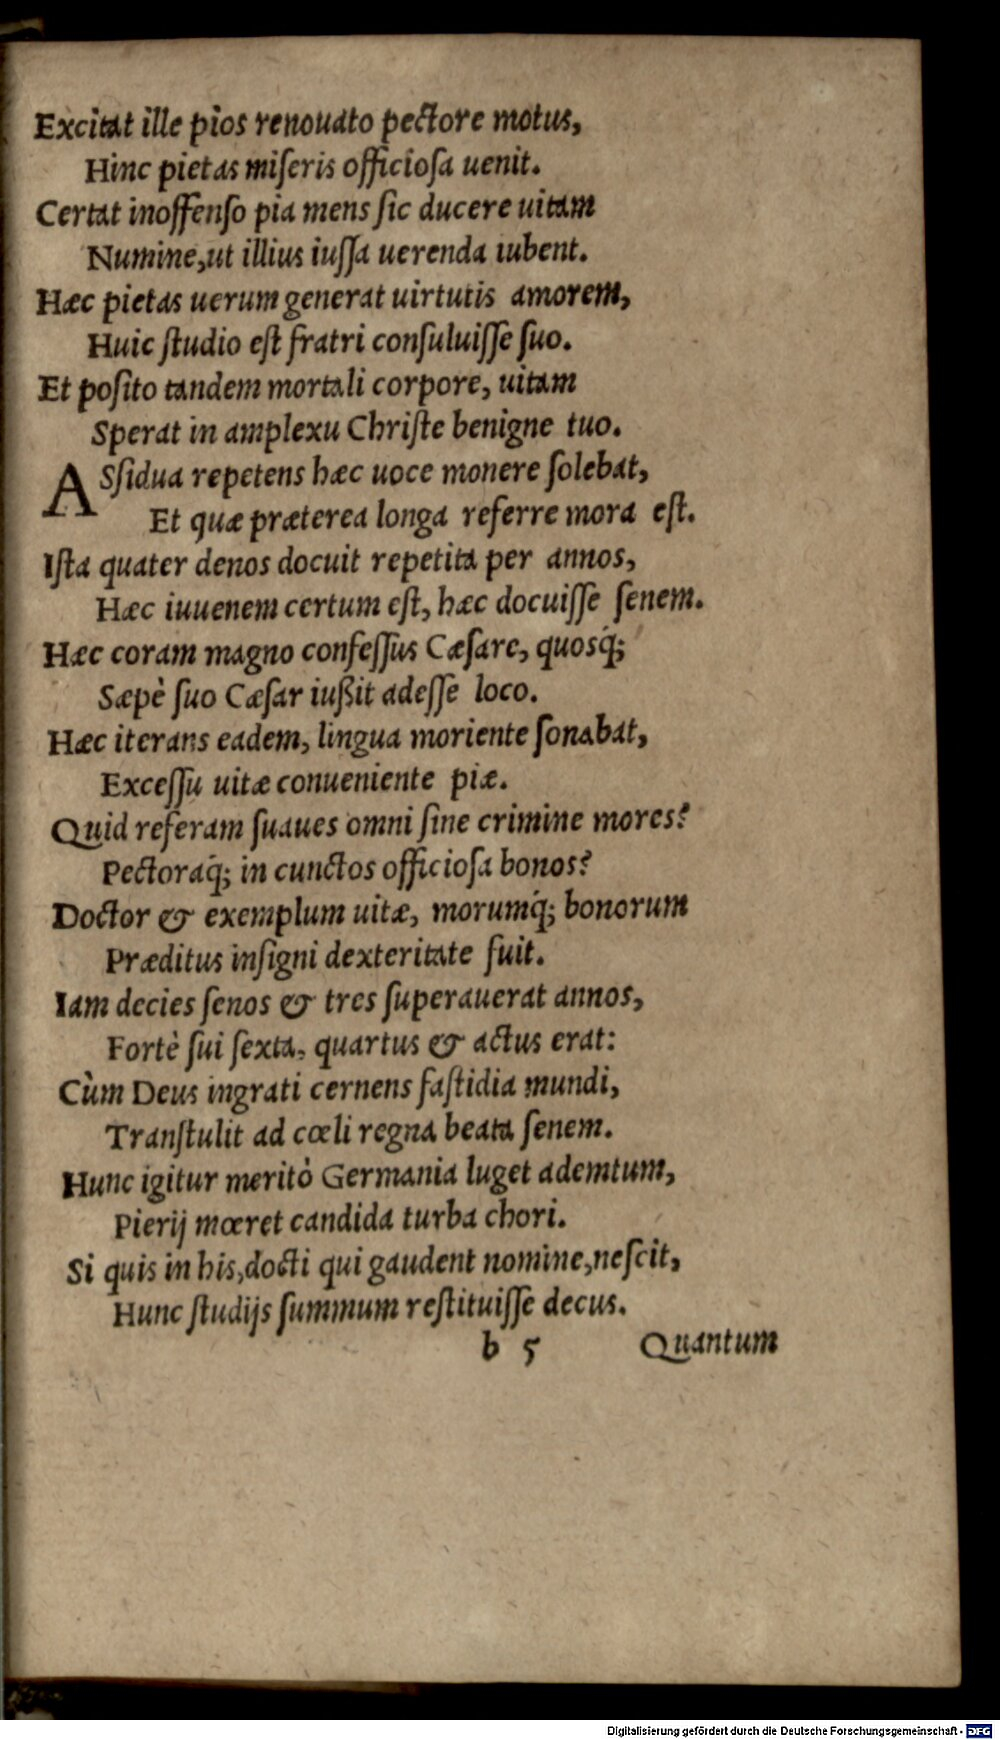 Excitat ille pios renouato pectore motus,
Hinc pietas miſeris officioſa uenit.
Certat inoffenſo pia mens ſic ducere uitam
Numine,ut illius iuſſa uerenda iubent.
Hæc pietas uerum generat uirtutis amorem,
Huic ſtudio eſt fratri conſuluiſſe ſuo.
Et poſito tandem mortali corpore, uitam
Sperat in amplexu Chriſte benigne tuo.
ASſidua repetens hæc uoce monere ſolebat,
Et quæ præterea longa referre mora eſt.
Iſta quater denos docuit repetita per annos,
Hæc iuuenem certum eſt, hæc docuiſſe ſenem.
Hæc coram magno confeſſus Cæſare, quosq́;
Sæpè ſuo Cæſar iußit adeſſe loco.
Hæc iterans eadem, lingua moriente ſonabat,
Exceſſu uitæ conueniente piæ.
Quid referam ſuaues omni ſine crimine mores?
Pectoraq́; in cunctos officioſa bonos?
Doctor & exemplum uitæ, morumq́; bonorum
Præditus inſigni dexteritate fuit.
Iam decies ſenos & tres ſuperauerat annos,
Fortè ſui ſexta, quartus & actus erat:
Cùm Deus ingrati cernens faſtidia mundi,
Tranſtulit ad cœli regna beata ſenem.
Hunc igitur meritò Germania luget ademtum,
Pierij mœret candida turba chori.
Si quis in his,docti qui gaudent nomine,neſcit,
Hunc ſtudijs ſummum reſtituiſſe decus.
b 5 Quantum
Digitalisierung gefördert durch die Deutsche Forschungsgemeinschaft - DFG